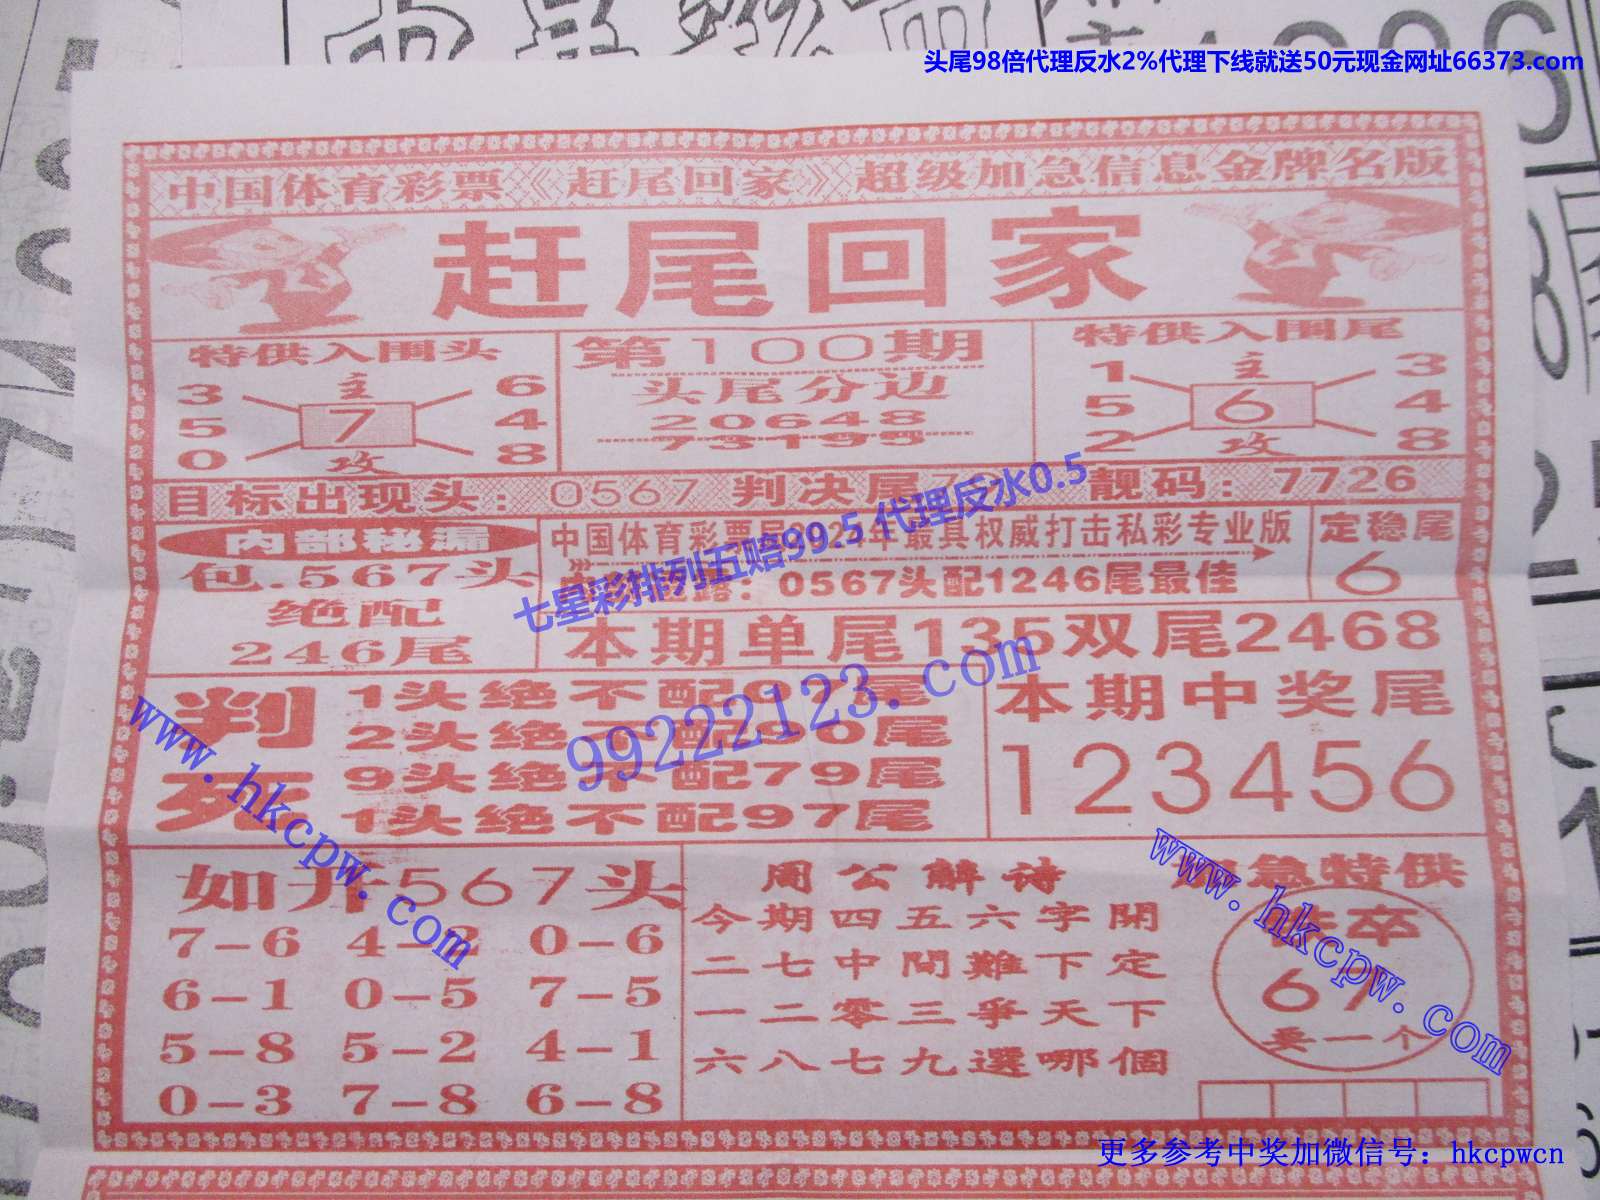 头尾98倍代理反水2%代理下线就送50元现金网址66373.com
中国体育彩票《赶尾回家》超级加急信息金牌名版
赶尾回家
特供入围头
3 主 6
5 7 4
0 攻 8
第100期
头尾分边
20648
73195
特供入围尾
1 主 3
5 6 4
2 攻 8
目标出现头：0567 判决尾 靓码：7726
七星彩排列五赔99.5 代理反水0.5
内部秘漏
包.567头
绝配
246尾
中国体育彩票局2024年最具权威打击私彩专业版
0567头配1246尾最佳
定稳尾
6
本期单尾135双尾2468
99222123.com
判死
1头绝不配 尾
2头绝不配 尾
9头绝不配79尾
1头绝不配97尾
本期中奖尾
123456
www.hkcpw.com
如开567头
7-6 4-2 0-6
6-1 0-5 7-5
5-8 5-2 4-1
0-3 7-8 6-8
周公解诗
今期四五六字開
二七中間難下定
一二零三爭天下
六八七九選哪個
急特供
卒
67
卖一个
www.hkcpw.com
更多参考中奖加微信号：hkcpwcn